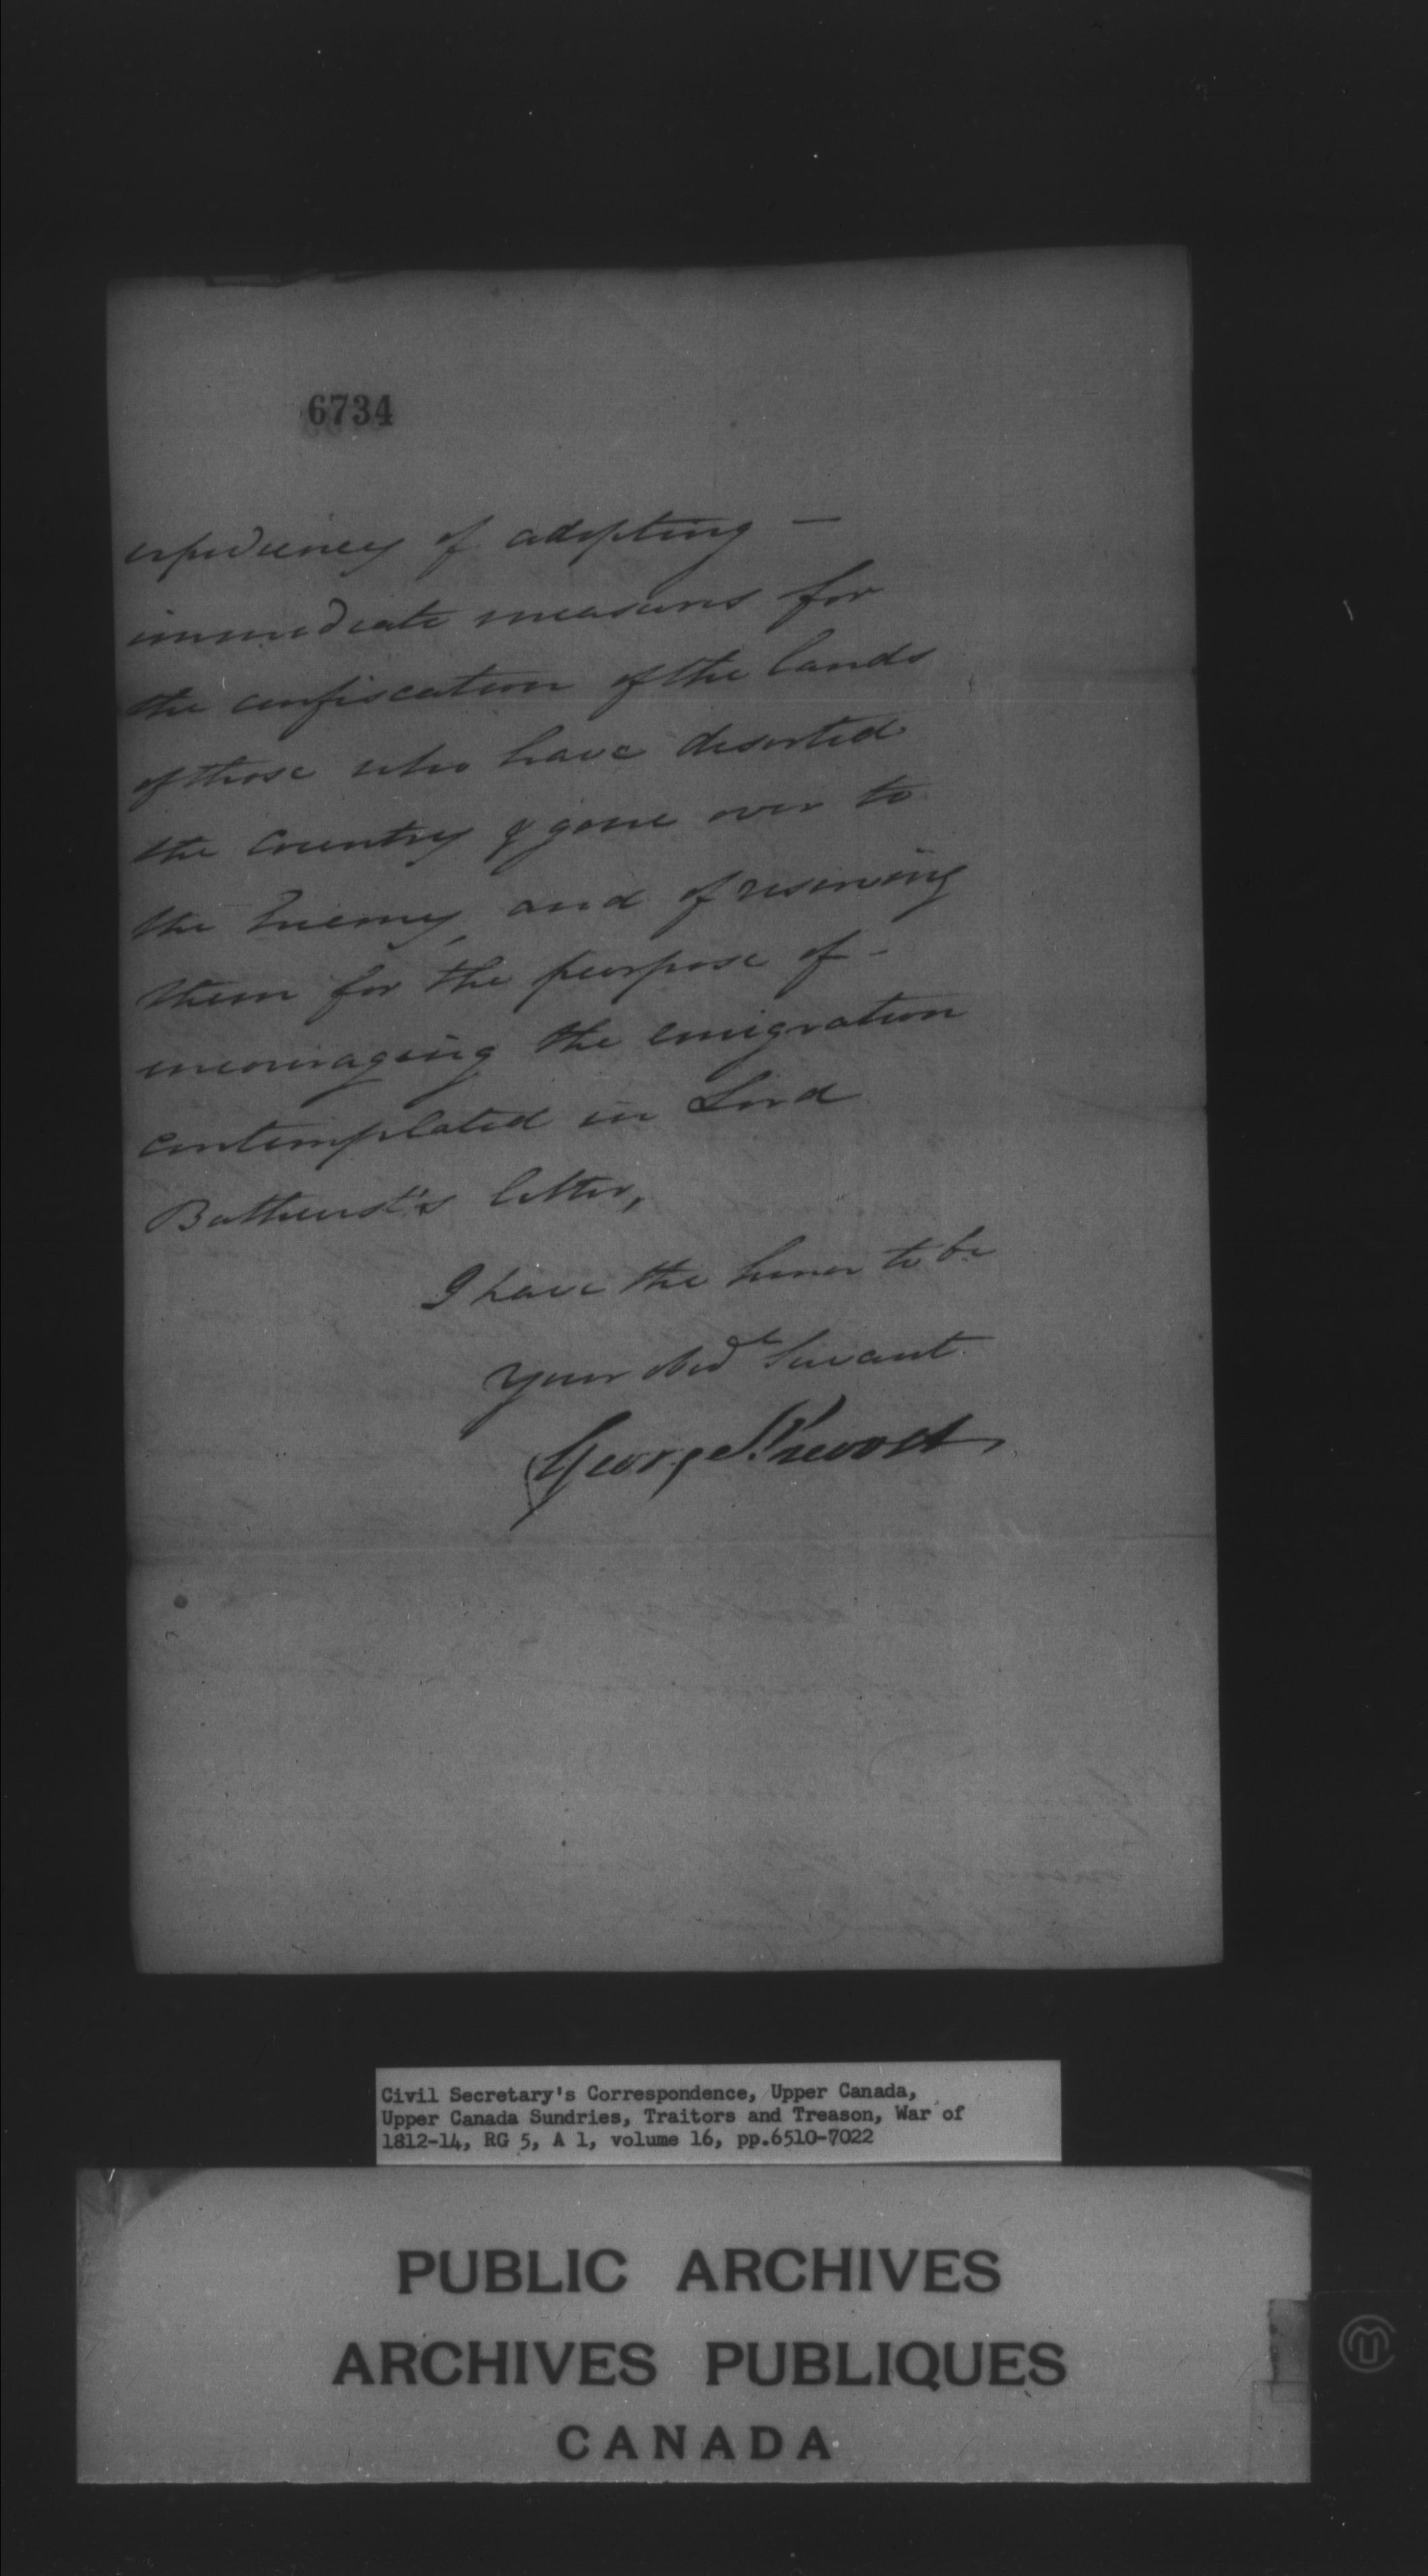 6734
expediency of adopting —
immediate measures for
the confiscation of the lands
of those who have deserted
the Country & gone over to
the Enemy, and of reserving
them for the purpose of -
encouraging the emigration
contemplated in Lord
Bathurst's letter,
I have the honor to be
Your Obedt Servant
George Prevost
Civil Secretary's Correspondence, Upper Canada,
Upper Canada Sundries, Traitors and Treason, War of
1812-14, RG 5, A 1, volume 16, pp.6510-7022
PUBLIC ARCHIVES
ARCHIVES PUBLIQUES
CANADA